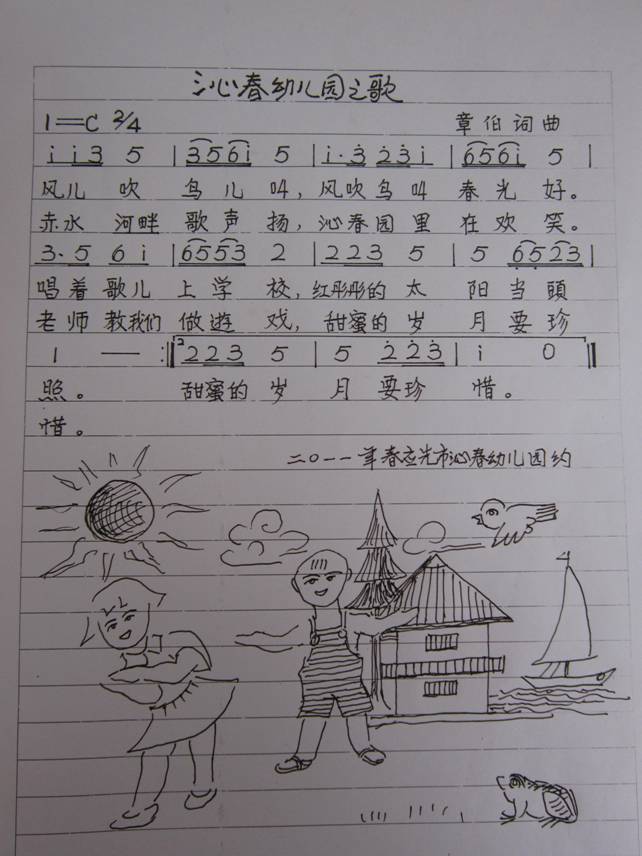 沁春幼儿园之歌
1=C 2/4 章伯词曲
i i 3 5 | 3 5 6 i 5 | i · 3 2 3 i | 6 5 6 i 5 |
风儿 吹 鸟 儿 叫，风吹鸟叫 春光 好。
赤水 河畔 歌声 扬，沁春园里 在欢 笑。
3· 5 6 i | 6 5 5 3 2 | 2 2 3 5 | 5 6 5 2 3 |
唱着 歌儿 上学 校，红彤彤的 太 阳当頭
老师 教我们 做遊 戏，甜蜜的 岁 月要珍
1 — :‖ 2 2 2 3 5 | 5 2 2 3 | i 0 ‖
照。 甜蜜的 岁 月 要珍 惜。
惜。
二〇一一年春 市沁春幼儿园约